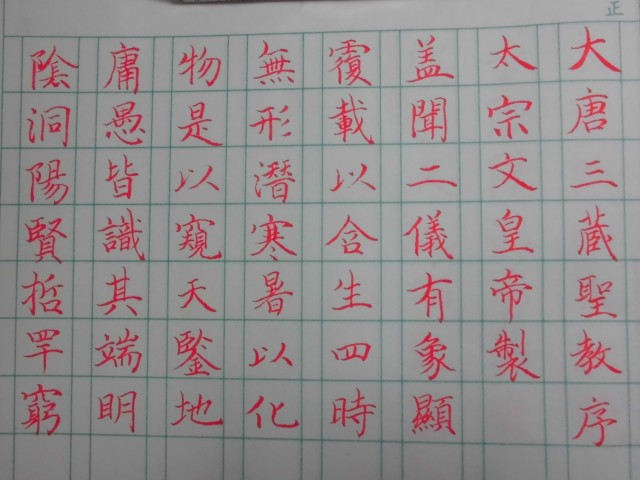 正
大唐三蔵聖教序
太宗文皇帝製
盖聞二儀有象顯
覆載以含生四時
無形潛寒暑以化
物是以窺天鑒地
庸愚皆識其端明
陰洞陽賢哲罕窮